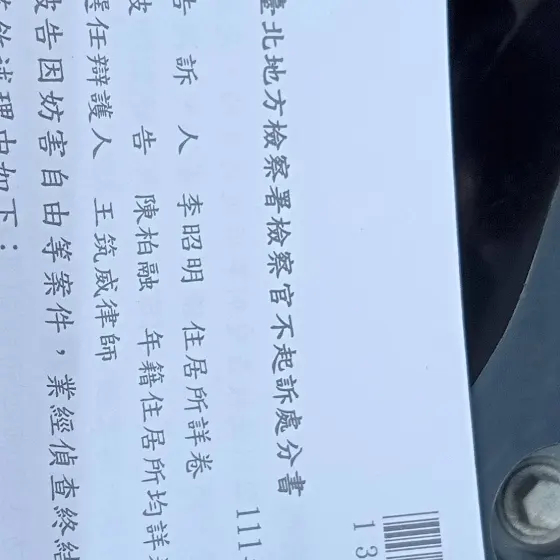 臺北地方檢察署檢察官不起訴處分書
111
13
告訴人 李昭明 住居所詳卷
告 陳柏融 年籍住居所均詳
選任辯護人 王筑威律師
被告因妨害自由等案件，業經偵查終結
敘述理由如下：